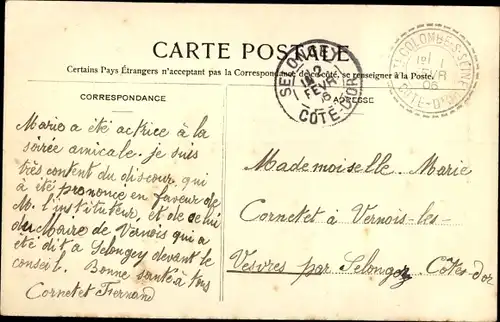 CARTE POSTALE
Certains Pays Étrangers n'acceptant pas la Correspondance de ce côté, se renseigner à la Poste.
CORRESPONDANCE
ADRESSE
SELONGEY
2
FEVR
06
CÔTE-D'OR
COLOMBE-S-SEINE
1
FEVR
06
CÔTE-D'OR
Marie a été actrice à la
soirée amicale. je suis
très content du discour qui
a été prononcé en faveur de
M. l'instituteur, et de celui
du Maire de Vernois qui a
été dit a Selongey devant le
conseil. Bonne santé à tous
Cornetet Fernand
Mademoiselle Marie
Cornetet à Vernois-les-
Vesvres par Selongey Côte-d'or